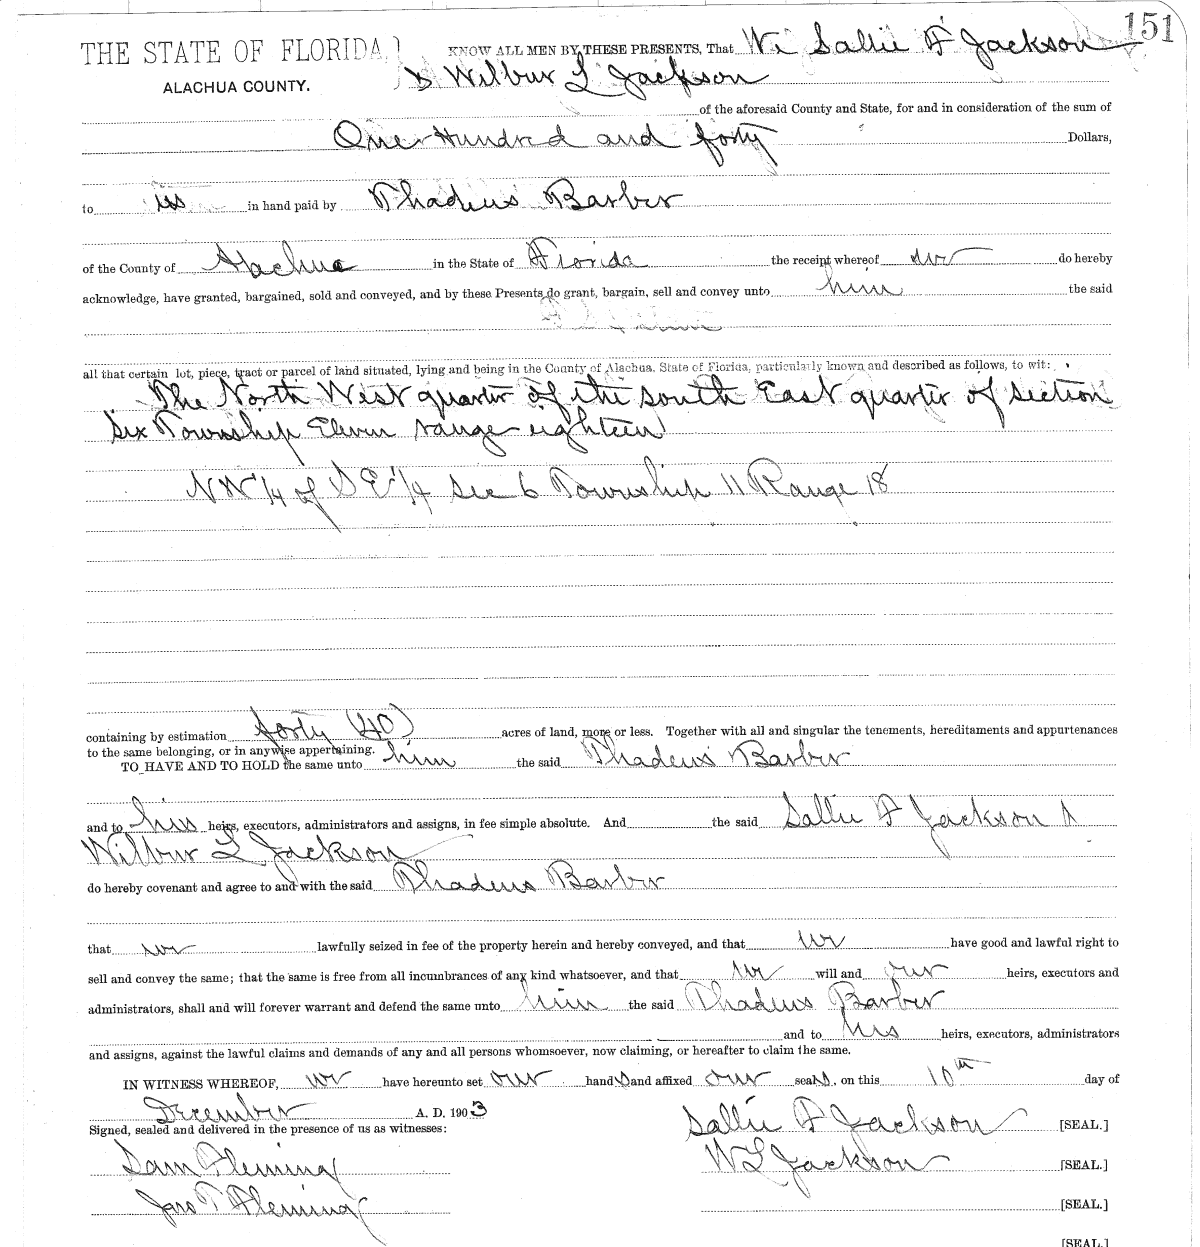 151
THE STATE OF FLORIDA, } KNOW ALL MEN BY THESE PRESENTS, That We Sallie F Jackson
ALACHUA COUNTY. & Wilbur L Jackson
of the aforesaid County and State, for and in consideration of the sum of
One Hundred and forty Dollars,
to us in hand paid by Thadeus Barber
of the County of Alachua in the State of Florida the receipt whereof we do hereby
acknowledge, have granted, bargained, sold and conveyed, and by these Presents do grant, bargain, sell and convey unto him the said
all that certain lot, piece, tract or parcel of land situated, lying and being in the County of Alachua, State of Florida, particularly known and described as follows, to wit:
The North West quarter of the south East quarter of section
Six Township Eleven range eighteen
NW 1/4 of SE 1/4 Sec 6 Township 11 Range 18
containing by estimation forty (40) acres of land, more or less. Together with all and singular the tenements, hereditaments and appurtenances
to the same belonging, or in anywise appertaining.
TO HAVE AND TO HOLD the same unto him the said Thadeus Barber
and to his heirs, executors, administrators and assigns, in fee simple absolute. And the said Sallie F Jackson &
Wilbur L Jackson
do hereby covenant and agree to and with the said Thadeus Barber
that we lawfully seized in fee of the property herein and hereby conveyed, and that we have good and lawful right to
sell and convey the same; that the same is free from all incumbrances of any kind whatsoever, and that we will and our heirs, executors and
administrators, shall and will forever warrant and defend the same unto him the said Thadeus Barber
and to his heirs, executors, administrators
and assigns, against the lawful claims and demands of any and all persons whomsoever, now claiming, or hereafter to claim the same.
IN WITNESS WHEREOF, we have hereunto set our hands and affixed our seals, on this 10th day of
December A. D. 1903
Signed, sealed and delivered in the presence of us as witnesses: Sallie F Jackson [SEAL.]
Sam Fleming W L Jackson [SEAL.]
Jas T Fleming [SEAL.]
[SEAL.]